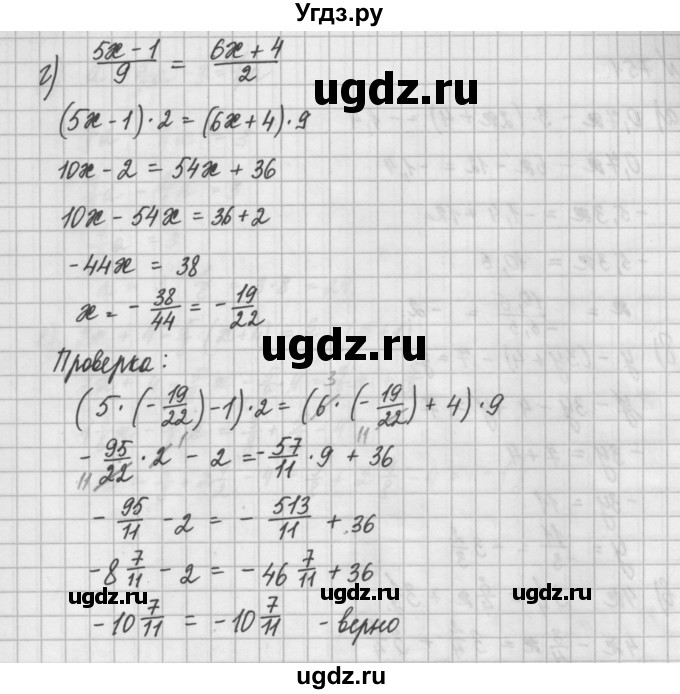 Угдз.ру
г) (5x - 1)/9 = (6x + 4)/2
ugdz.ru
(5x - 1) · 2 = (6x + 4) · 9
10x - 2 = 54x + 36
10x - 54x = 36 + 2
- 44x = 38
x = - 38/44 = - 19/22
ugdz.ru
Проверка:
(5 · (- 19/22) - 1) · 2 = (6 · (- 19/22) + 4) · 9
- 95/22 · 2 - 2 = - 57/11 · 9 + 36
- 95/11 - 2 = - 513/11 + 36
- 8 7/11 - 2 = - 46 7/11 + 36
ugdz.ru ugdz.ru ugdz.ru
- 10 7/11 = - 10 7/11 - верно
ugdz.ru